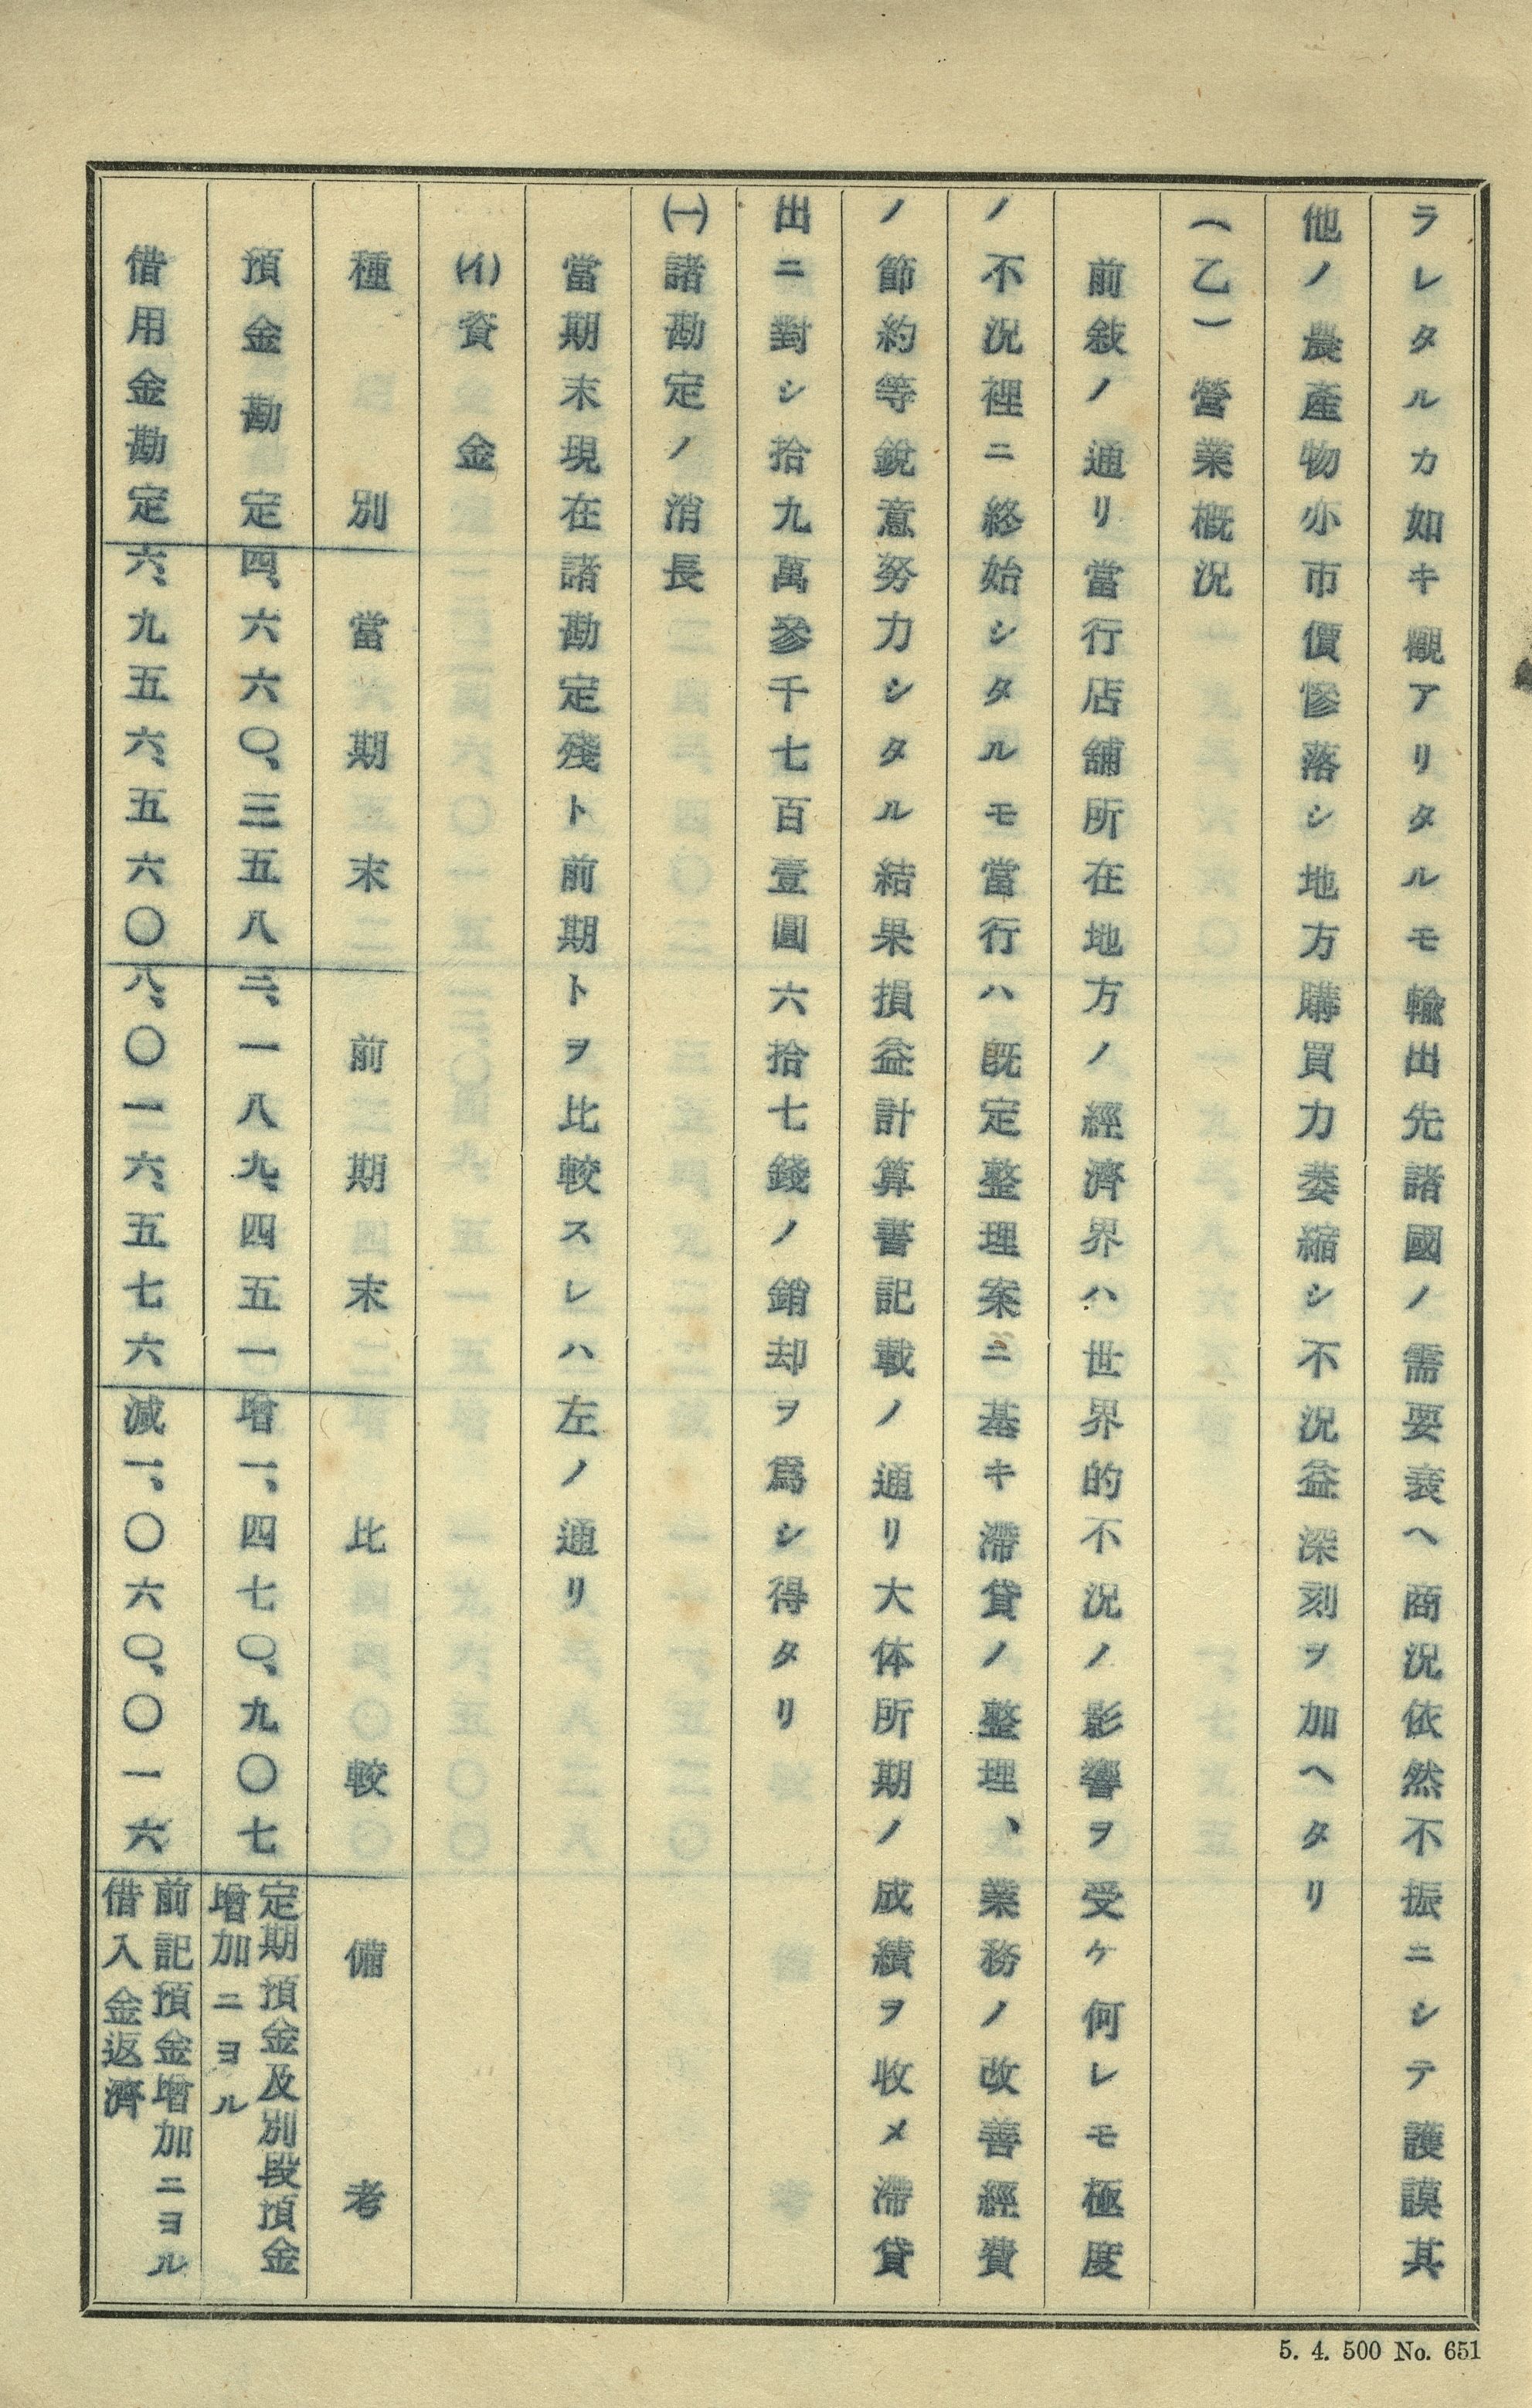 ラレタルカ如キ觀アリタルモ輸出先諸國ノ需要衰ヘ商況依然不振ニシテ護謨其
他ノ農產物亦市價慘落シ地方購買力萎縮シ不況益深刻ヲ加ヘタリ
(乙)營業概況
前敍ノ通リ當行店舖所在地方ノ經濟界ハ世界的不況ノ影響ヲ受ケ何レモ極度
ノ不況裡ニ終始シタルモ當行ハ既定整理案ニ基キ滯貸ノ整理、業務ノ改善經費
ノ節約等銳意努力シタル結果損益計算書記載ノ通リ大体所期ノ成績ヲ收メ滯貸
出ニ對シ拾九萬參千七百壹圓六拾七錢ノ銷却ヲ爲シ得タリ
(一)諸勘定ノ消長
當期末現在諸勘定殘ト前期トヲ比較スレハ左ノ通リ
(イ)資金
種別 當期末 前期末 比較 備考
預金勘定 四、六六〇、三五八 三、一八九、四五一 增一、四七〇、九〇七 定期預金及別段預金
增加ニヨル
借用金勘定 六、九五六、五六〇 八、〇一六、五七六 減一、〇六〇、〇一六 前記預金增加ニヨル
借入金返濟
5. 4. 500 No. 651